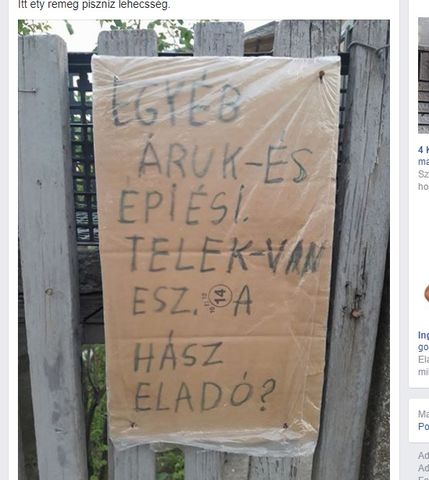 Itt ety remeg piszniz lehecsség.
EGYÉB
ÁRUK-ÉS
ÉPIÉSI.
TELEK-VAN
ESZ. 14 A
HÁSZ
ELADÓ?
4 K
ma
Sz
ho
Ing
go
Ela
mil
Ma
Po
Ad
Ad